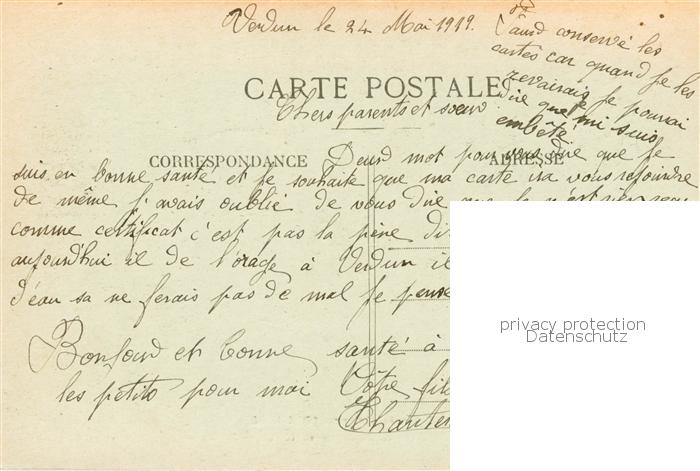 Verdun le 24 Mai 1919.
faurd conservé les
cartes car quand je les
revairais je pourrai
dire que je mi suis
embêté
CARTE POSTALE
Chers parents et sœur
CORRESPONDANCE
ADRESSE
Deud mot pour vous dire que je
suis en bonne santé et je souhaite que ma carte ira vous rejoindre
de même j'avais oublié de vous dire que je n'est rien reçu
comme certificat c'est pas la peine di
aujourd'hui il de l'orage à Verdun il
d'eau sa ne ferais pas de mal je pense
Bonjourd et bonne santé à
les petits pour moi Vôtre fils
privacy protection
Datenschutz